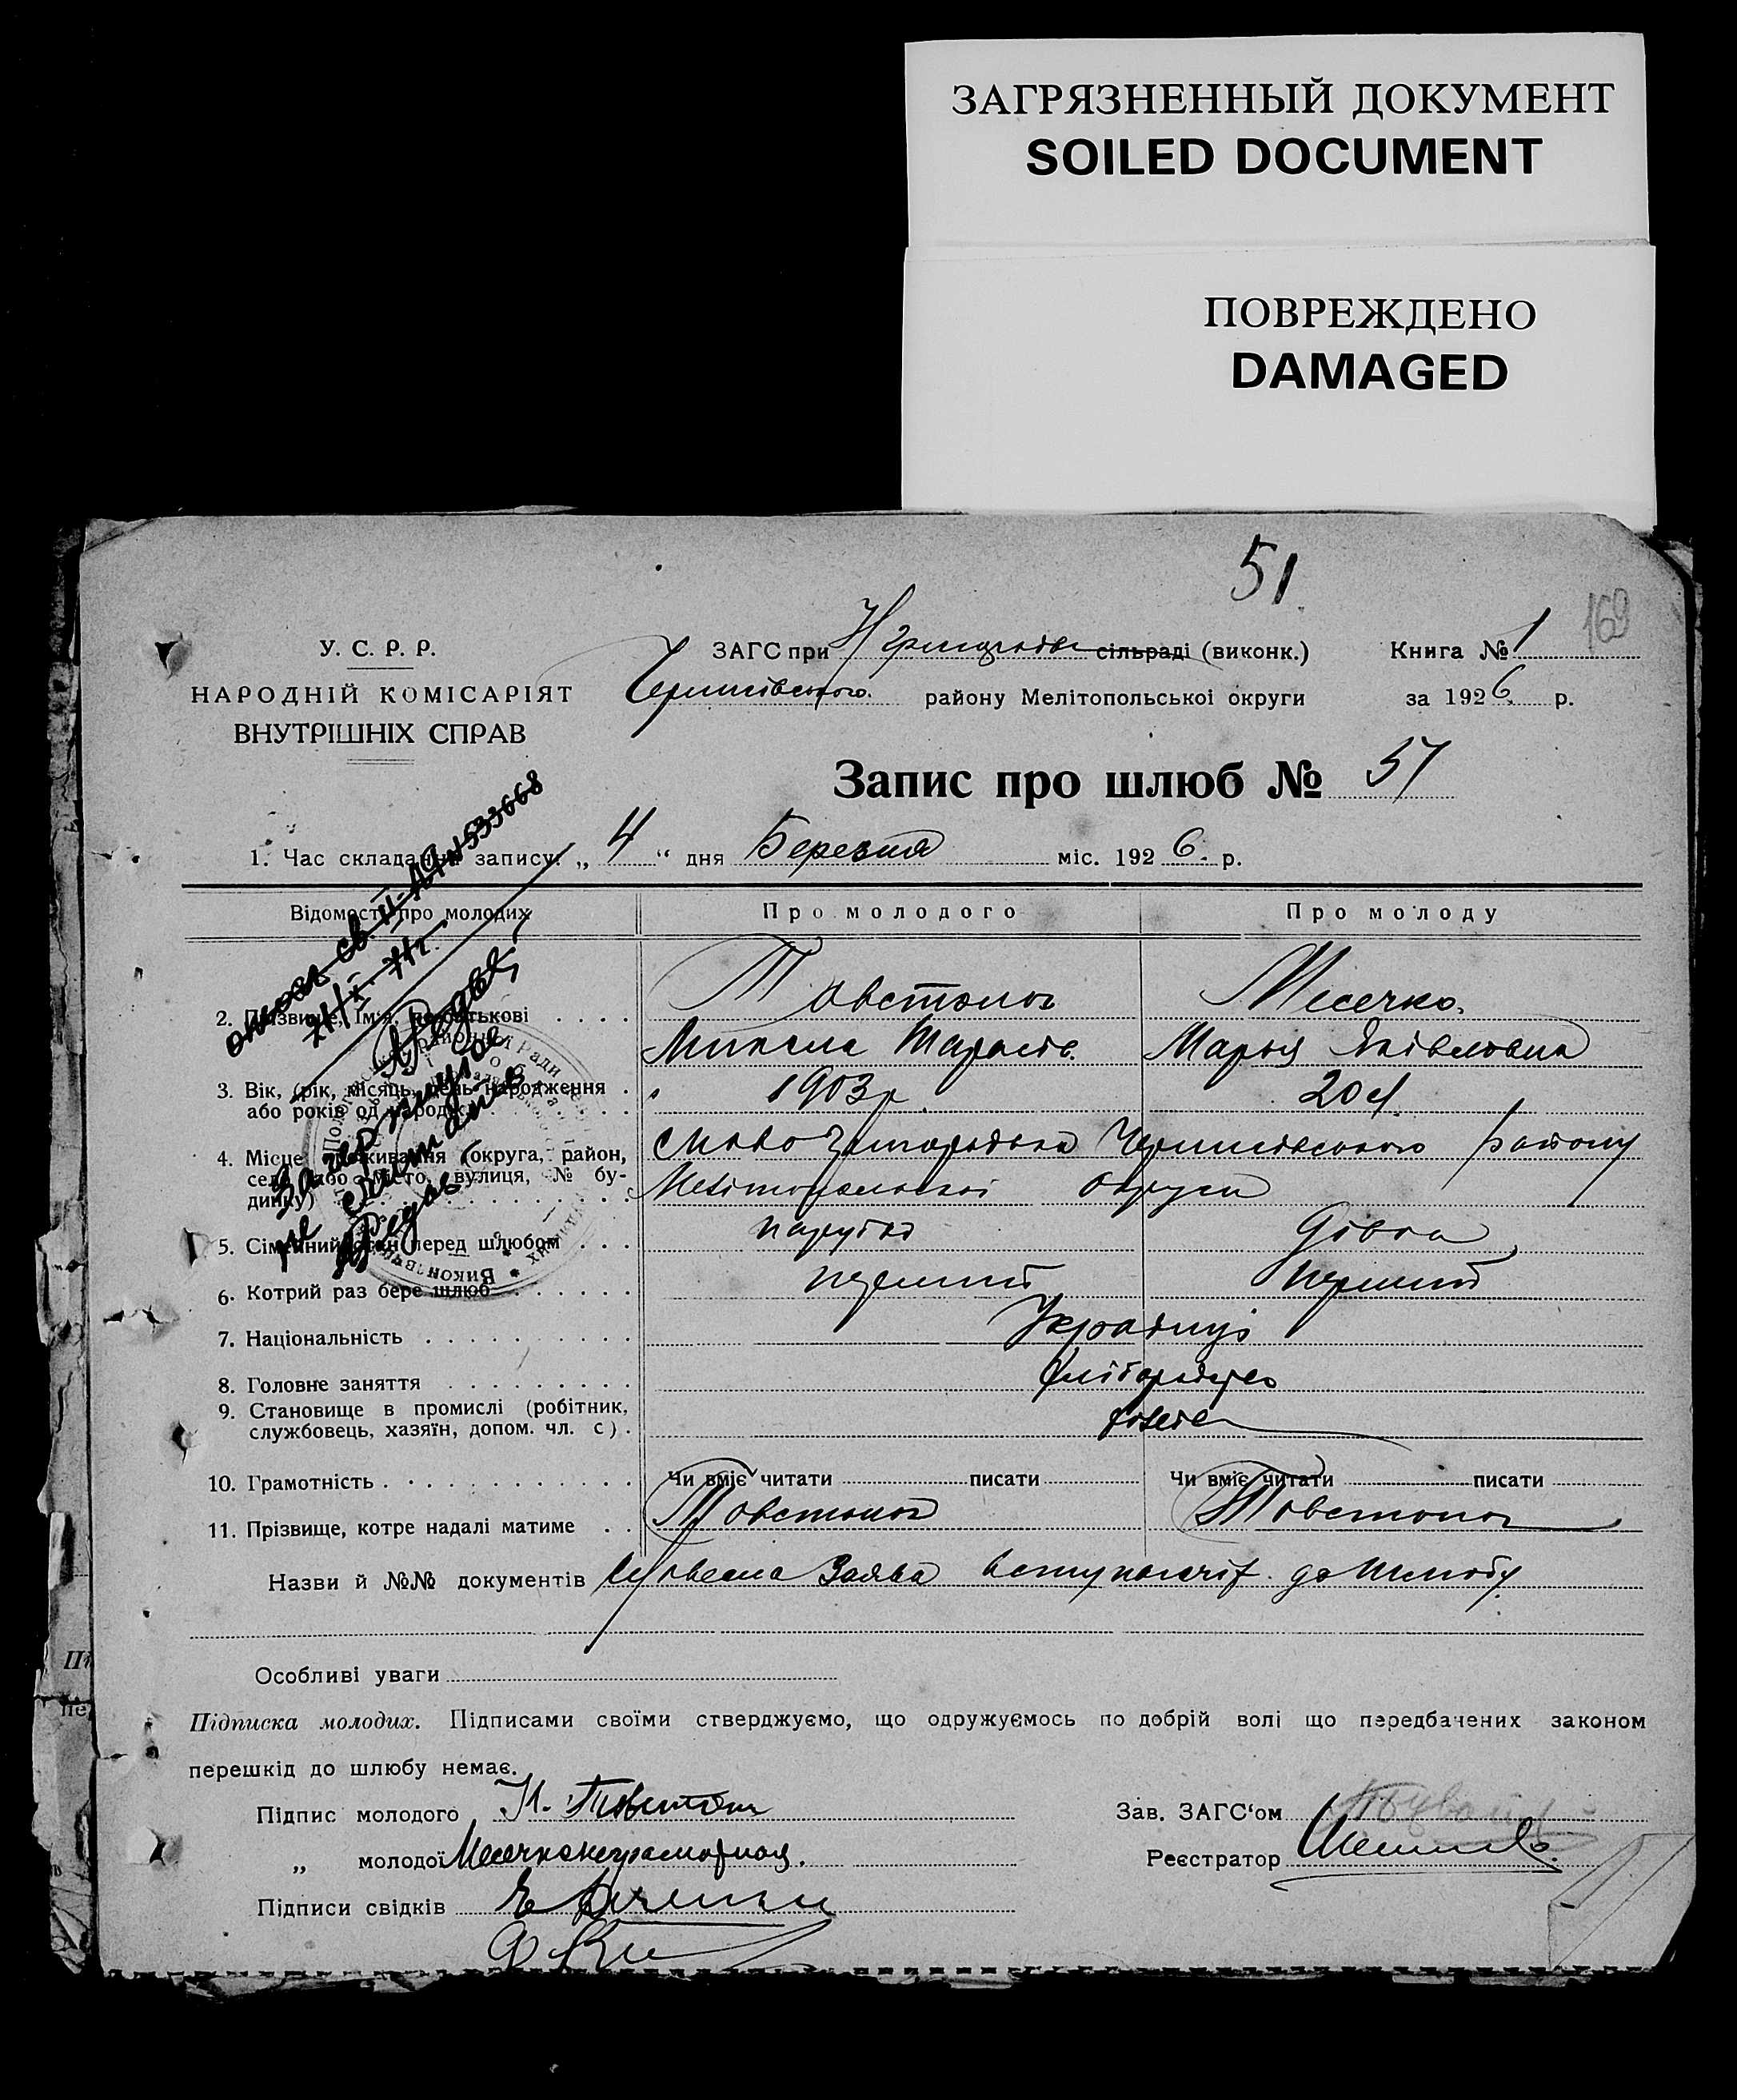 ЗАГРЯЗНЕННЫЙ ДОКУМЕНТ
SOILED DOCUMENT
ПОВРЕЖДЕНО
DAMAGED
51
169
У. С. Р. Р.
ЗАГС при сільраді (виконк.) Книга № 1
НАРОДНІЙ КОМІСАРІЯТ
Чернигівського району Мелітопольської округи за 1926 р.
ВНУТРІШНІХ СПРАВ
Запис про шлюб № 51
1. Час складання запису: „ 4 “ дня Березня міс. 1926. р.
Відомості про молодих Про молодого Про молоду
Товстоног Месечко.
2. Прізвище, ім'я, по батькові
Микола Тарасів. Марья Яківловна
3. Вік, (рік, місяць, день народження 1903 р. 20 л.
або років од народж.)
4. Місце проживання (округа, район, Чернигівського району
село або місто, вулиця, № бу-
динку) Мелітопольської округи
5. Сімейний стан перед шлюбом парубок дівка
6. Котрий раз бере шлюб перший перший
7. Національність Українці
8. Головне заняття хліборобство
9. Становище в промислі (робітник,
службовець, хазяїн, допом. чл. с.)
10. Грамотність Чи вміє читати писати Чи вміє читати писати
11. Прізвище, котре надалі матиме Товстоног Товстоног
Назви й №№ документів Словесна Заява вступающіх до шлюбу.
Особливі уваги
Підписка молодих. Підписами своїми стверджуємо, що одружуємось по добрій волі що передбачених законом
перешкід до шлюбу немає.
Підпис молодого Зав. ЗАГС'ом
„ молодої Месечко неграмотная. Реєстратор
Підписи свідків